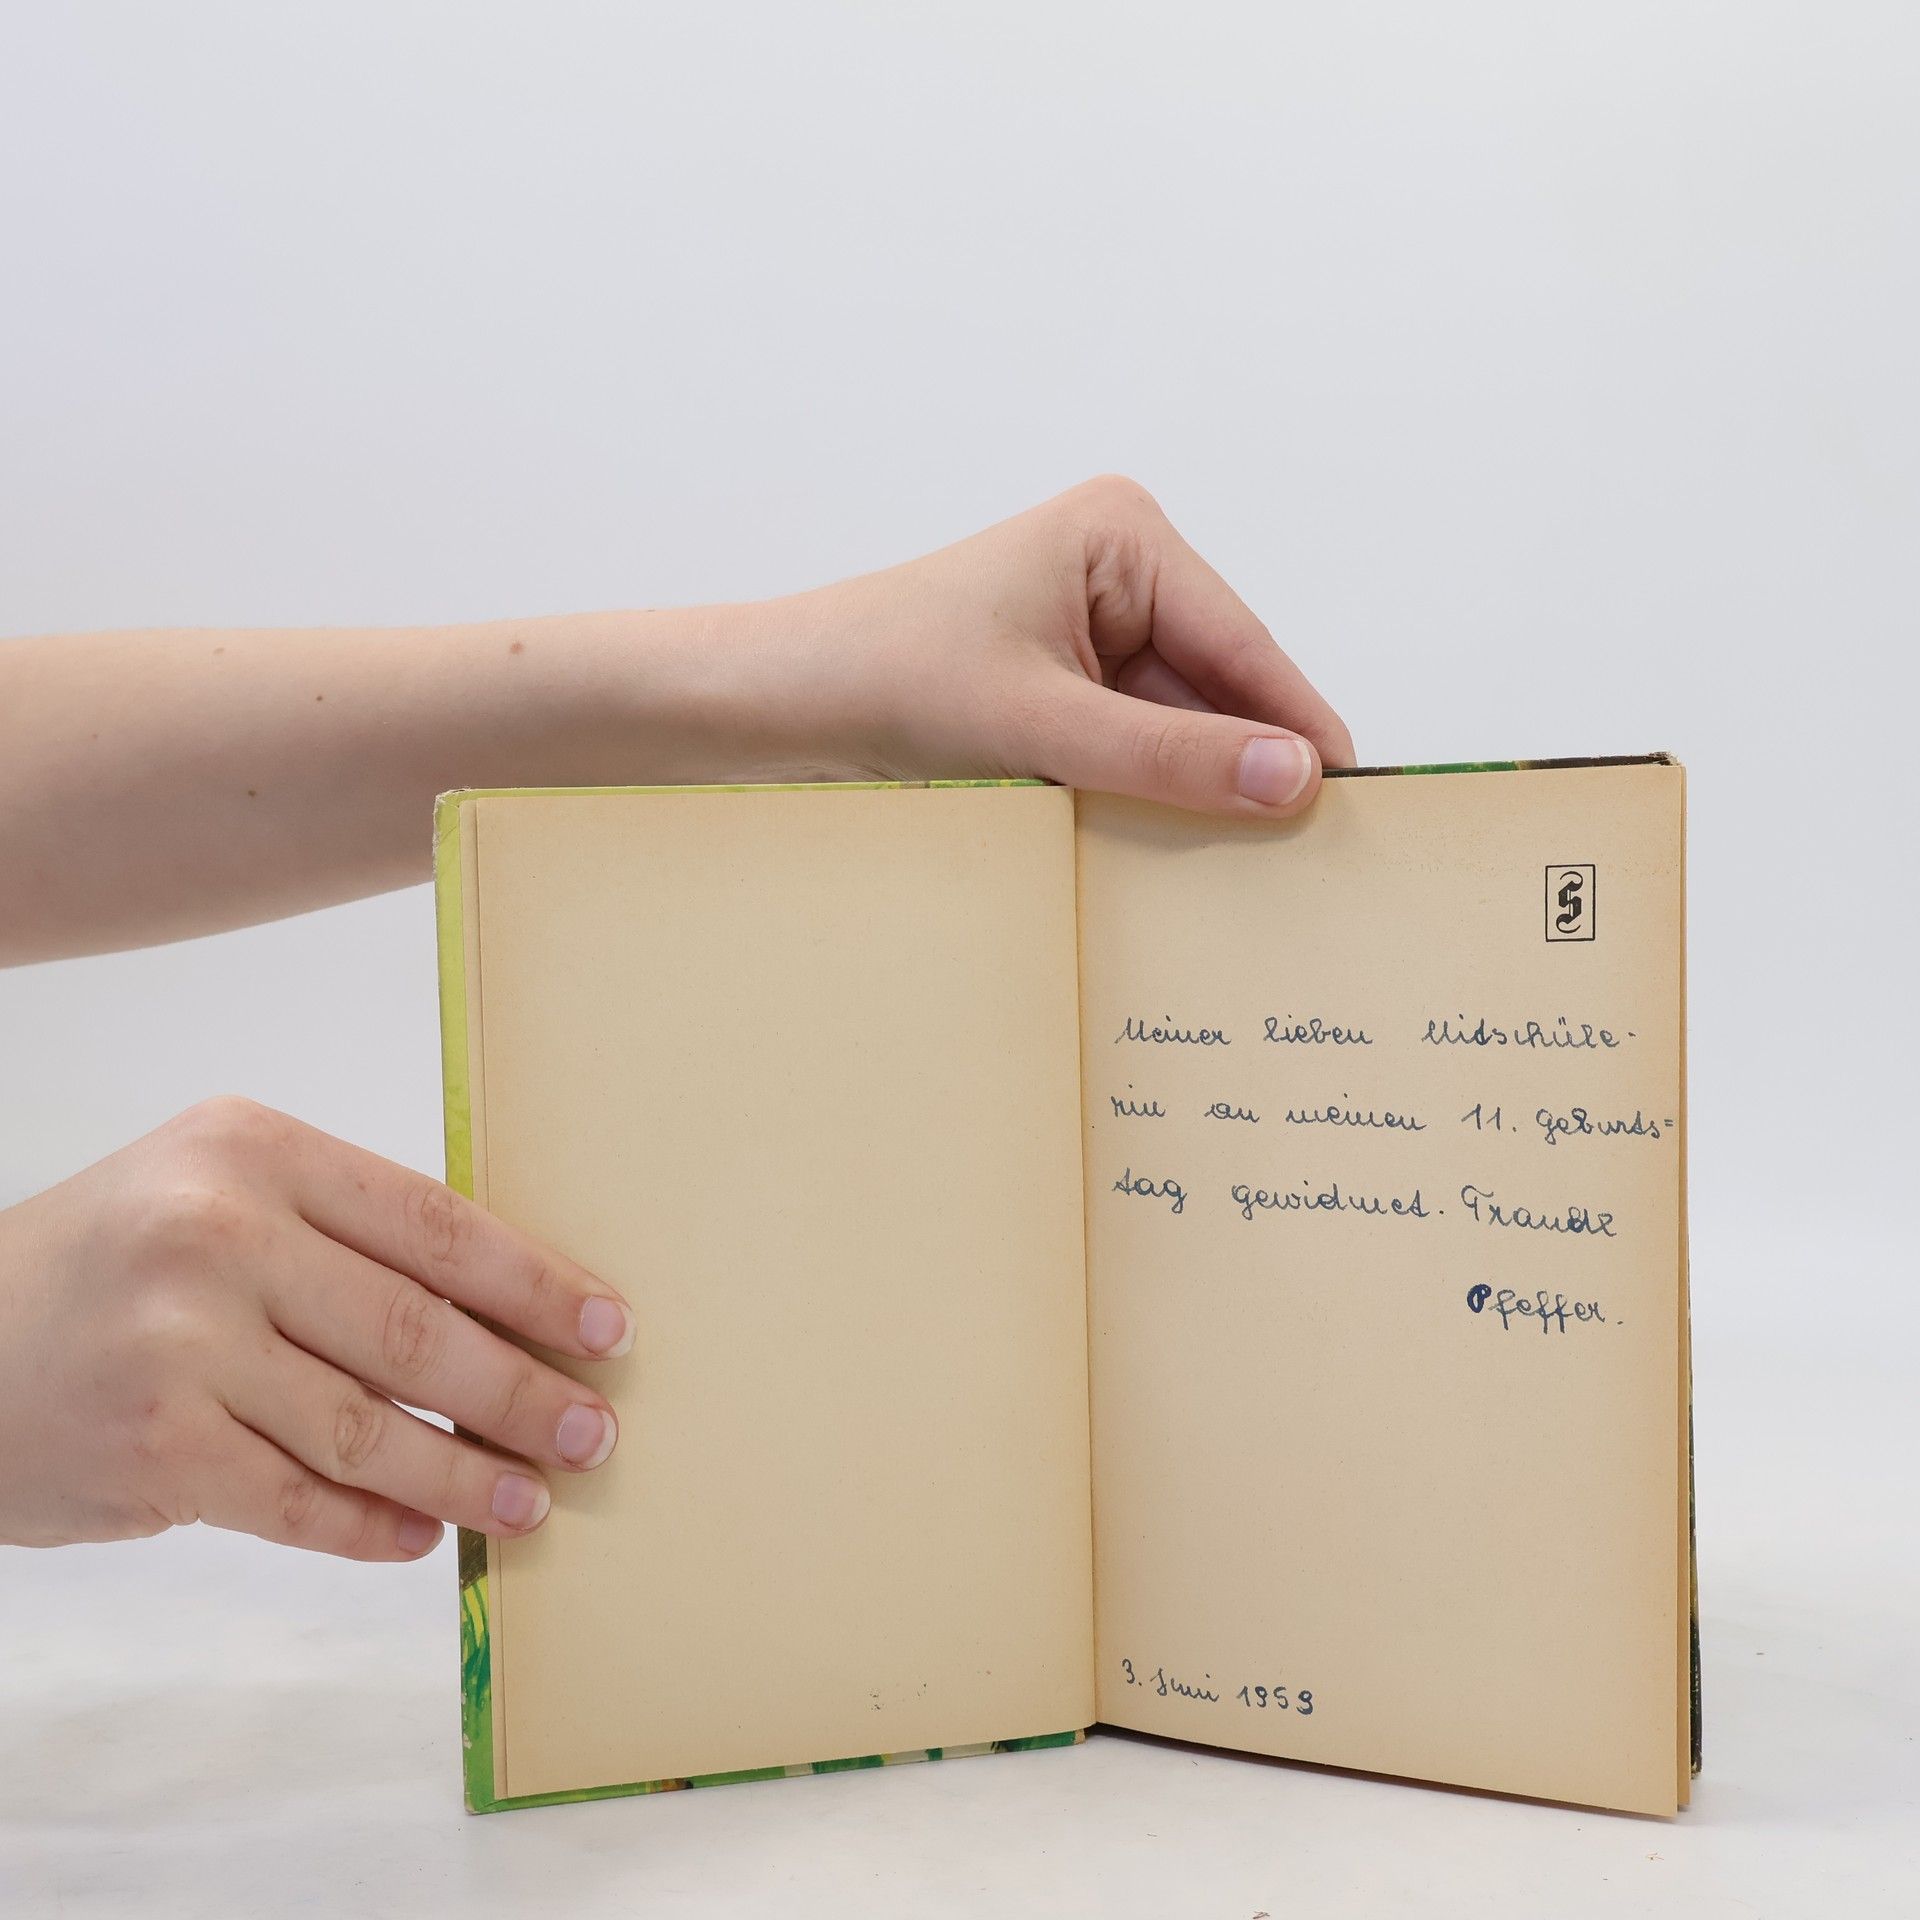 S
Meiner lieben Mitschüle-
rin an meinen 11. Geburts=
tag gewidmet. Traudl
Pfeffer.
3. Juni 1959